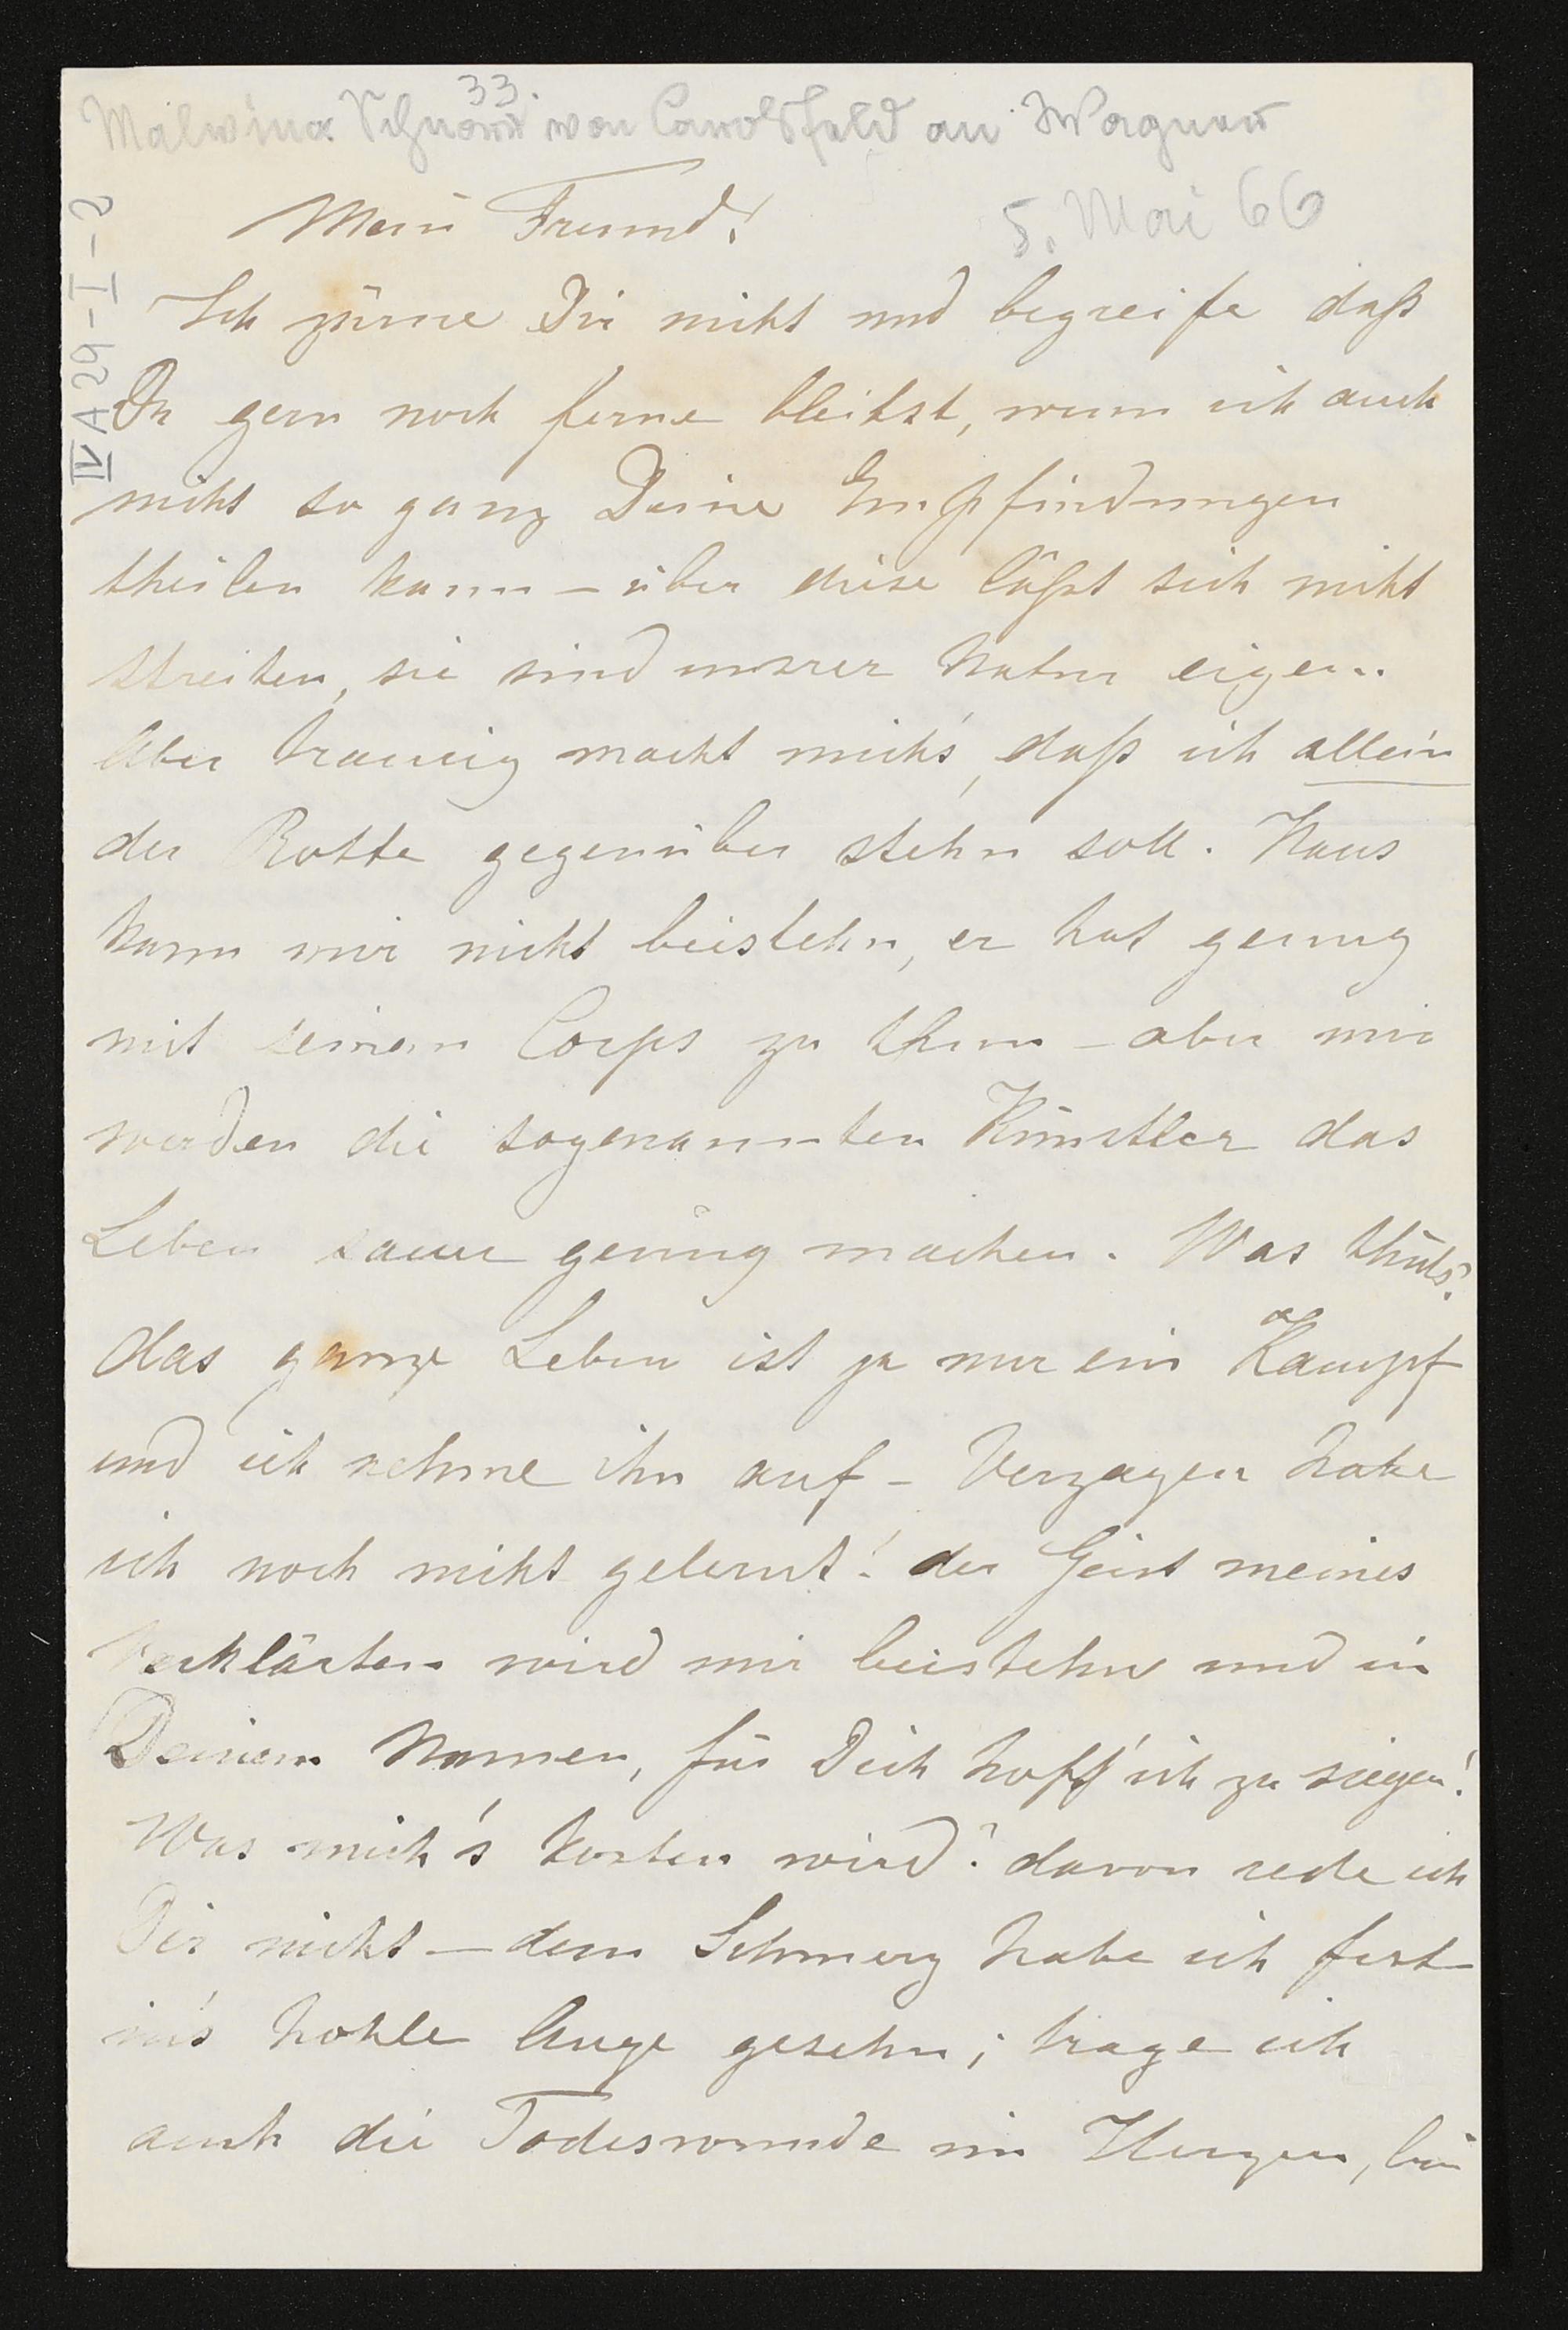 33.
Malwina Schnorr von Carolsfeld an Wagner
5. Mai 66
IV A 29-I-8
Mein Freund!
Ich zürne Dir nicht und begreife daß
Du gern noch ferne bleibst, wenn ich auch
nicht so ganz Deine Empfindungen
theilen kann – über diese läßt sich nicht
streiten, sie sind unsrer Natur eigen.
Aber traurig macht mich's, daß ich allein
der Rotte gegenüber stehn soll. Hans
kann mir nicht beistehn, er hat genug
mit seinem Corps zu thun – aber mir
werden die sogenannten Künstler das
Leben sauer genug machen. Was thuts?
das ganze Leben ist ja nur ein Kampf
und ich nehme ihn auf – Verzagen habe
ich noch nicht gelernt! der Geist meines
Verklärten wird mir beistehn und in
Deinem Namen, für Dich hoff' ich zu siegen!
Was mich's kosten wird? davon rede ich
Dir nicht – dem Schmerz habe ich fest
in's hohle Auge gesehn; trage ich
auch die Todeswunde im Herzen, bin